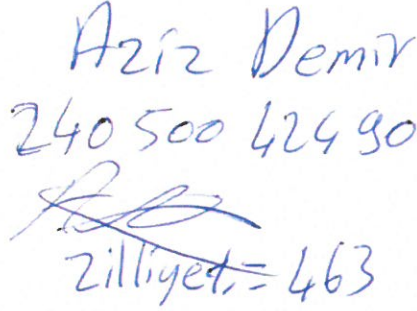 Aziz Demir
240 500 424 90
zilliyet = 463